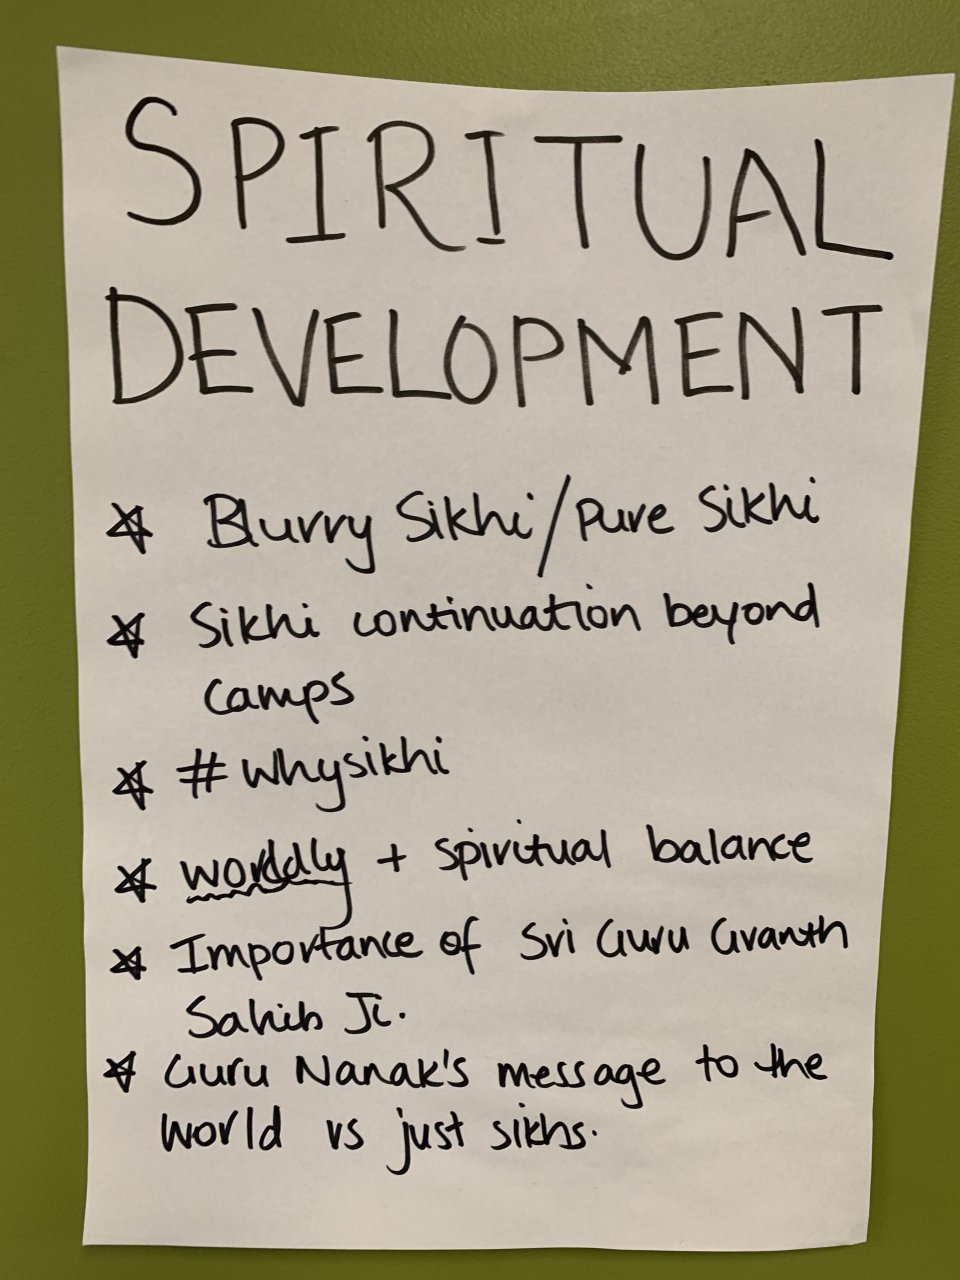 SPIRITUAL
DEVELOPMENT
☆ Blurry Sikhi/pure Sikhi
☆ Sikhi continuation beyond
camps
☆ #whysikhi
☆ worldly + spiritual balance
☆ Importance of Sri Guru Granth
Sahib Ji.
☆ Guru Nanak's message to the
world vs just sikhs.